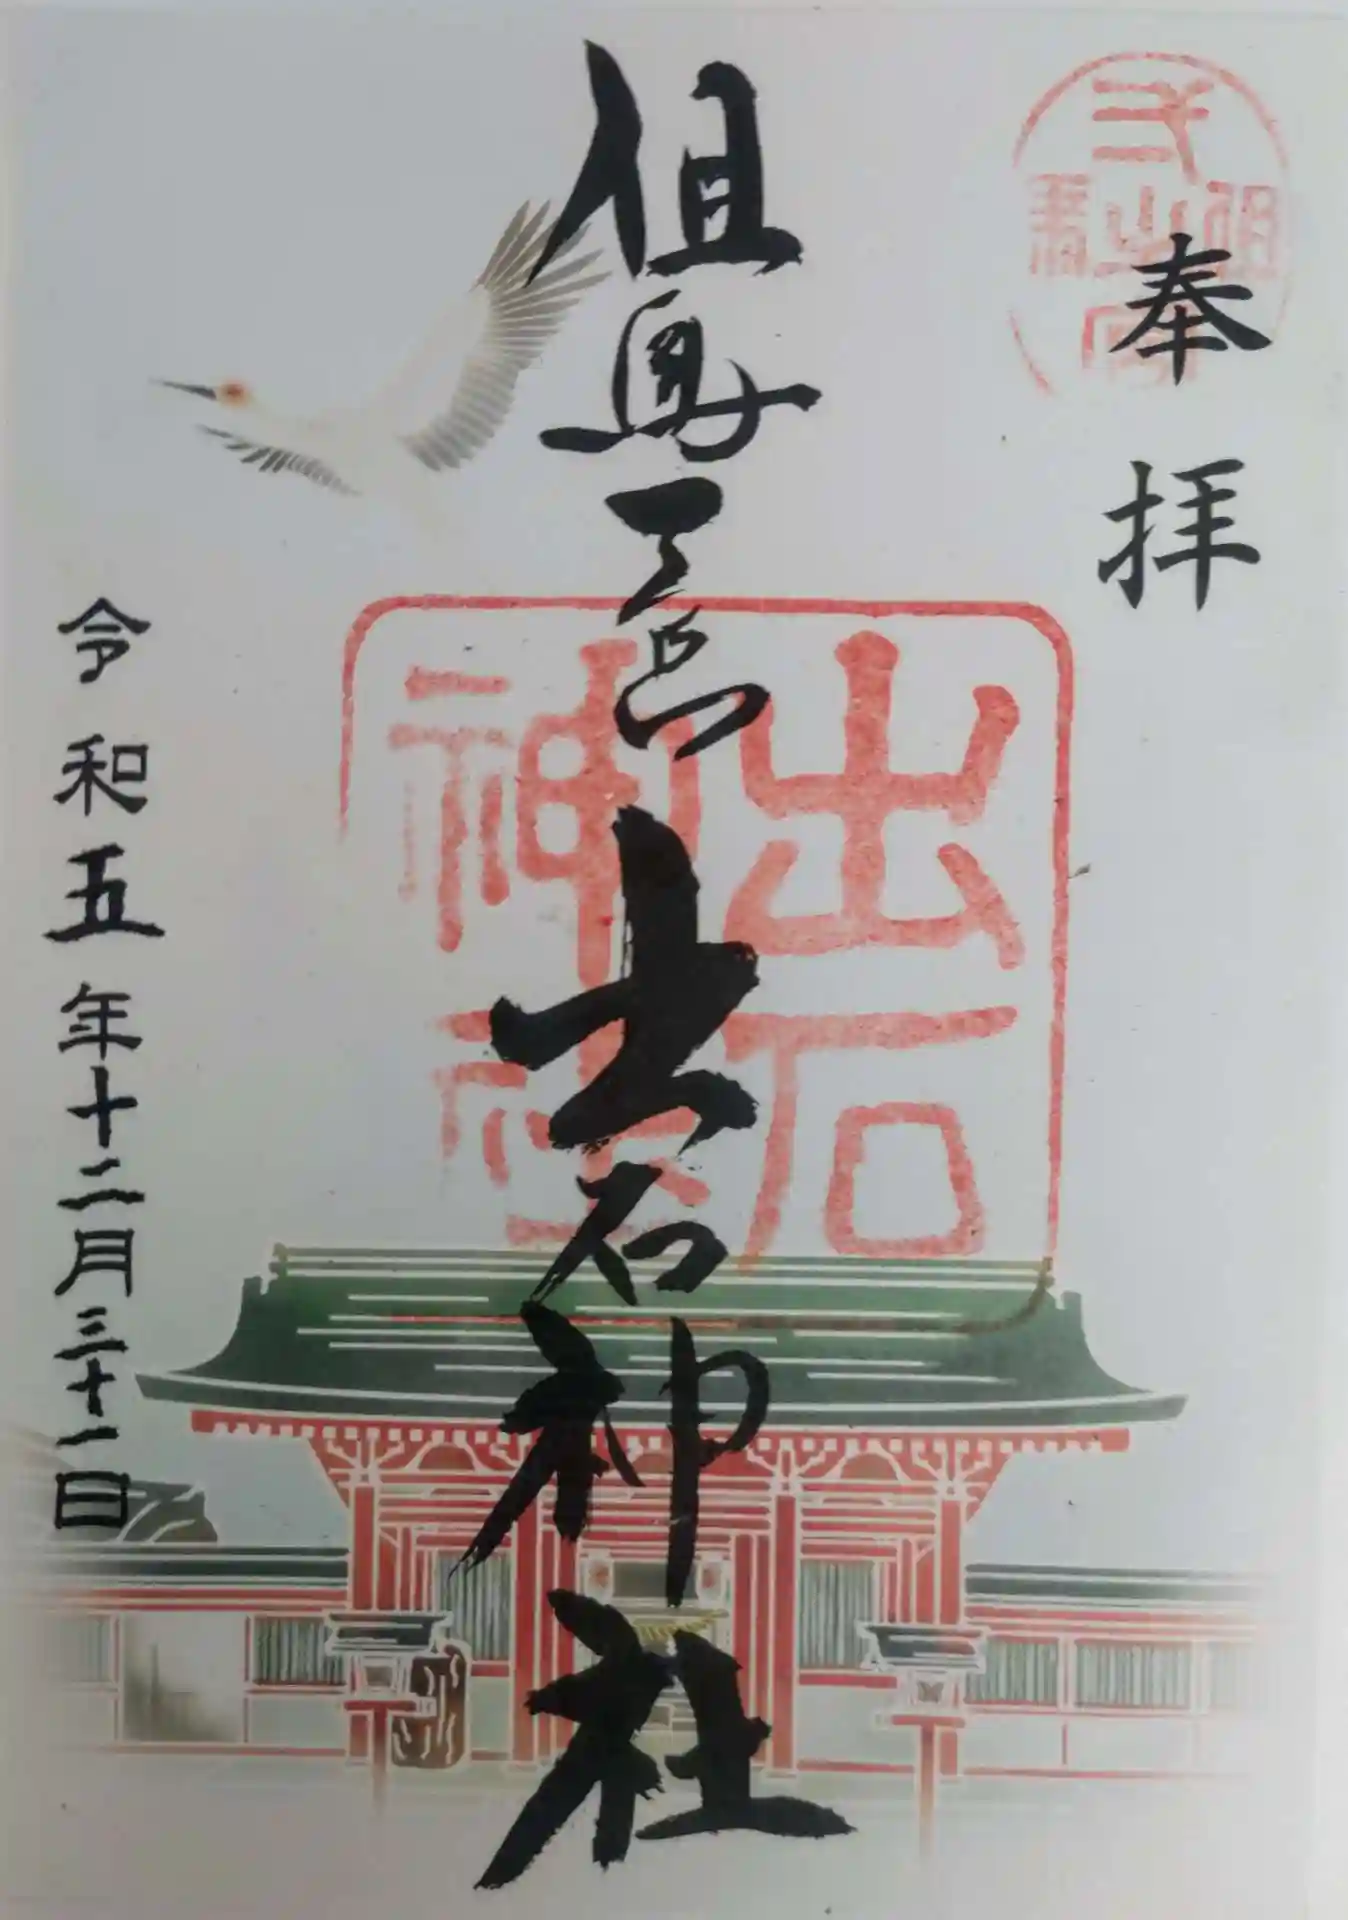 奉拝
但馬一宮出石神社
出石神社
令和五年十二月三十一日